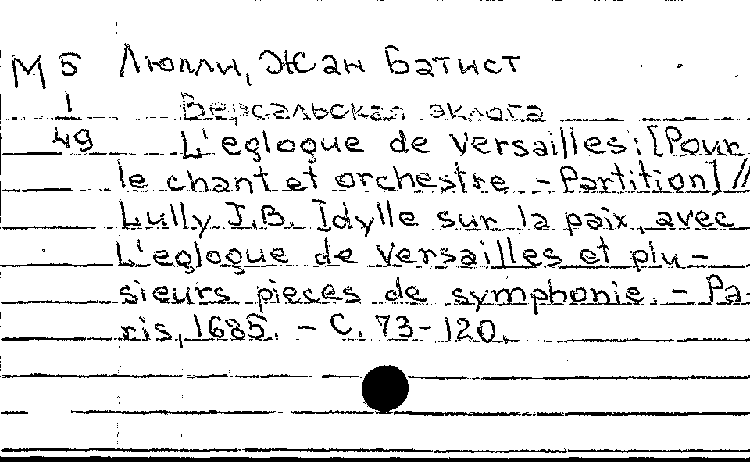 М 5 Люлли, Жан Батист
1 Версальская эклога
49 L'eglogue de Versailles: [Pour
le chant et orchestre. - Partition] //
Lully J.B. Idylle sur la paix, avec
L'eglogue de Versailles et plu-
sieurs pieces de symphonie. - Pa-
ris, 1685. - С. 73-120.